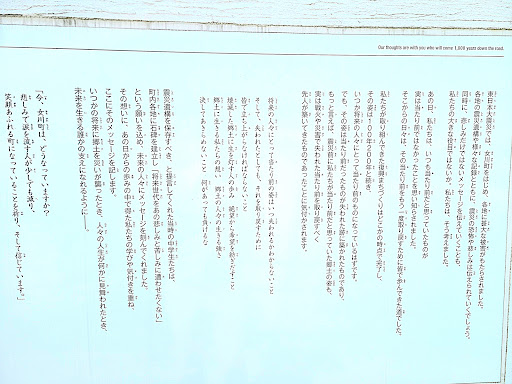 Our thoughts are with you who will come 1,000 years down the road.
東日本大震災では、女川町をはじめ、各地に甚大な被害がもたらされました。
各地の震災遺構や様々な記録とともに、震災の恐怖や悲しみは伝えられていくでしょう。
同時に、悲しみだけではないメッセージを伝えていくことも、
私たちの大きな役目ではないか。私たちは、そう考えました。
あの日、私たちは、いつも当たり前だと思っていたものが
実は当たり前ではなかったことを思い知らされました。
そこからの日々は、その当たり前をもう一度取り戻すために皆で歩んできた道でした。
私たちが取り組んできた復興まちづくりはどこかの時点で完了し、
その姿は100年200年と続き、
いつか将来の人々にとって当たり前のものになっているはずです。
でも、その姿は当たり前だったものが失われた跡に築かれたものであり、
もっと言えば、震災前に私たちが当たり前だと思っていた郷土の姿も、
実は戦火や災害で失われた当たり前を取り戻すべく
先人が築いてきたものであったことに気付かされます。
将来の人々にとって当たり前の姿はいつ失われるかわからないこと
そして、失われたとしても、それを取り戻すために
皆で立ち上がらなければならないこと
壊滅した郷土に光を灯す人の歩み 絶望から希望を紡ぎだすこと
郷土に生きる私たちの想い 何があっても負けるな
決してあきらめないこと
震災遺構を保存すべき、と提言してくれた当時の中学生たちは、
町内各地に石碑を建立し「将来世代をあの悲しみと苦しみに遭わせたくない」
という願いを込め、未来の人々にメッセージを刻んでくれました。
その想いに、あの日からの歩みの中で得た私たちの学びや気付きを重ね、
ここにそのメッセージを記します。
いつかの将来に郷土を災いが襲ったとき、人々の人生が何かに見舞われたとき、
未来を生きる誰かの支えになれるように――。
「今、女川町は、どうなっていますか?
悲しみで涙を流す人が少しでも減り、
笑顔あふれる町になっていることを祈り、そして信じています。」